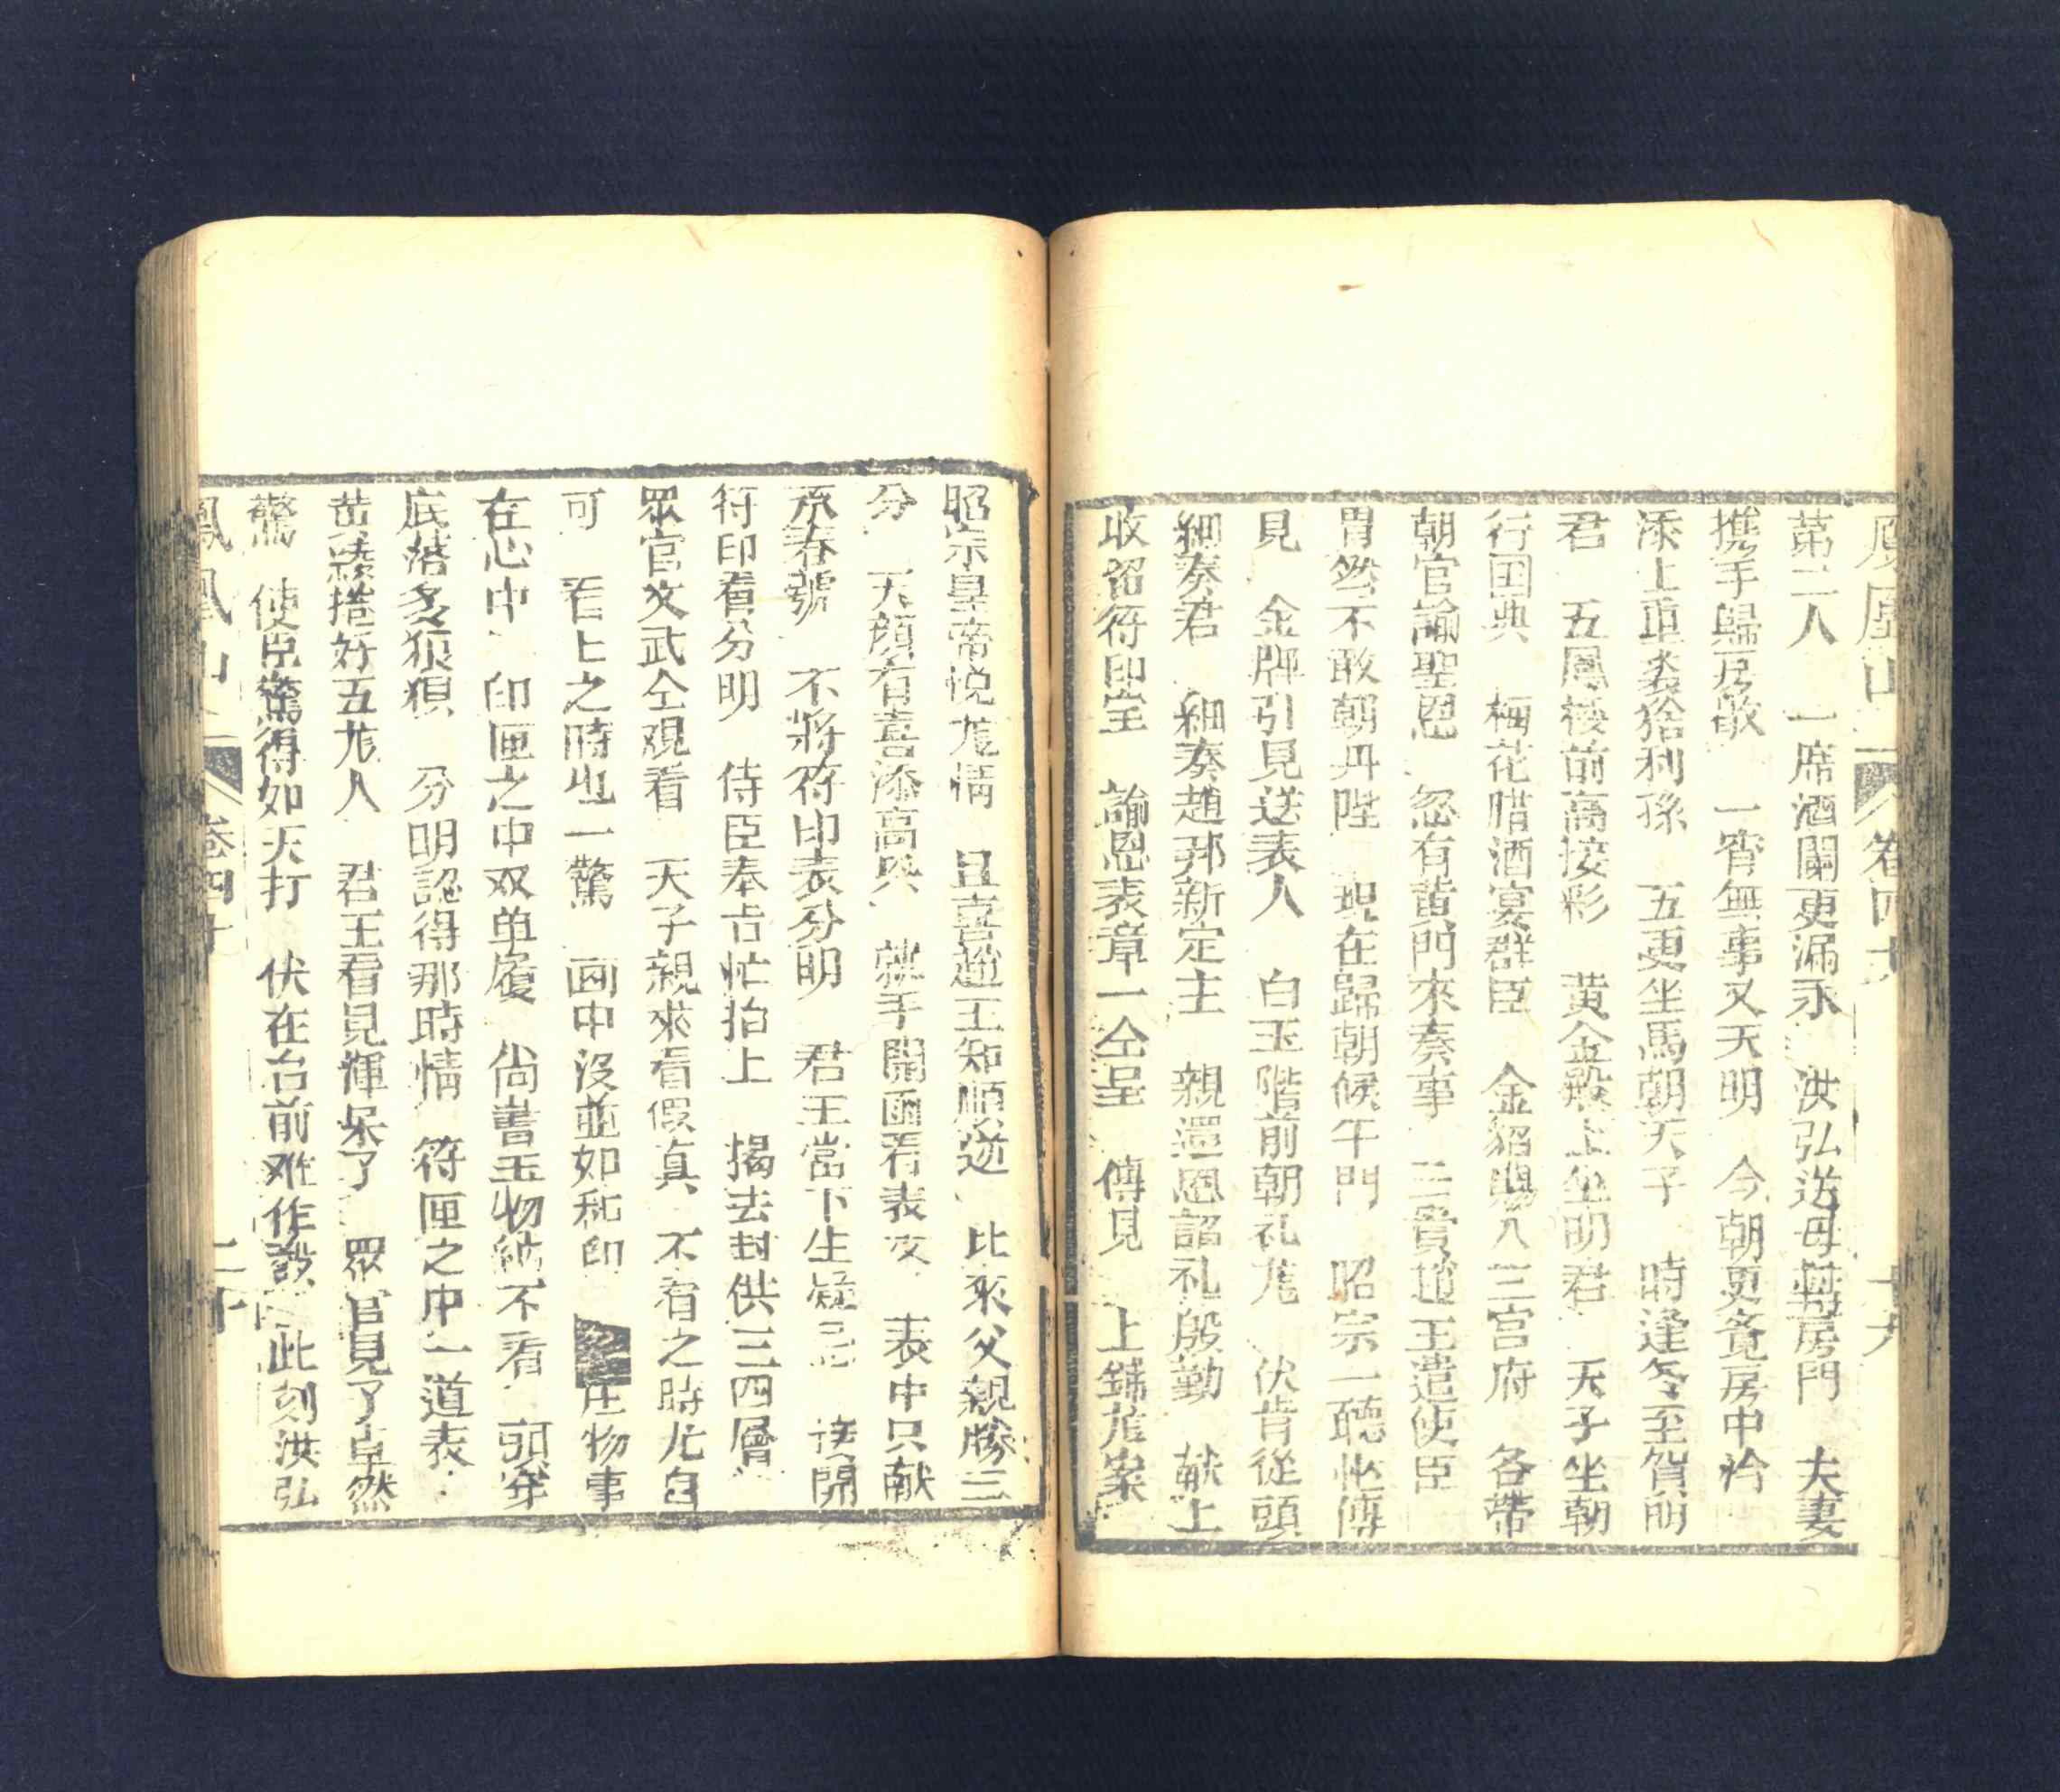 鳳凰山 卷四十 十九
第二人 一席酒闌更漏永 洪弘送母轉房門 夫妻
携手歸房敘 一宵無事又天明 今朝更
添上重裘猞利孫 五更坐馬朝天子 時逢冬至賀明
君 五鳳樓前高接彩 黄金殿上坐明君 天子坐朝
行国典 梅花腊酒宴群臣 金貂賜入三宫府 各帶
朝官諭聖恩 忽有黄門來奏事 三貴趙王遣使臣
冒然不敢朝丹陛 現在歸朝候午門 昭宗一聽忙傳
見 金牌引見送表人 白玉階前朝礼龙 伏背從頭
細奏君 細奏趙邦新定主 親還恩詔礼殷勤 献上
收留符印宝 諭恩表章一仝呈 傳見 上鋪龙案
昭宗皇帝悦龙情 且喜趙王知順逆 比來父親勝三
分 天顔有喜添高興 親手開函看表文 表中只献
承春號 不將符印表分明 君王當下生疑忌 開
符印看分明 侍臣奉占忙抬上 揭去封供三四層
眾官文武仝观看 天子親來看假真 不看之時尤自
可 看上之時吃一驚 匣中沒並如和印 庄物事
在心中 印匣之中双单履 尚書玉物 不看 頭穿
底落多狼狽 分明認得那時情 符匣之中一道表
黄綾捲好五龙人 君王看見渾呆了 眾官見了卓然
驚 使臣驚得如天打 伏在台前难作 此刻洪弘
鳳凰山 卷四十 二十